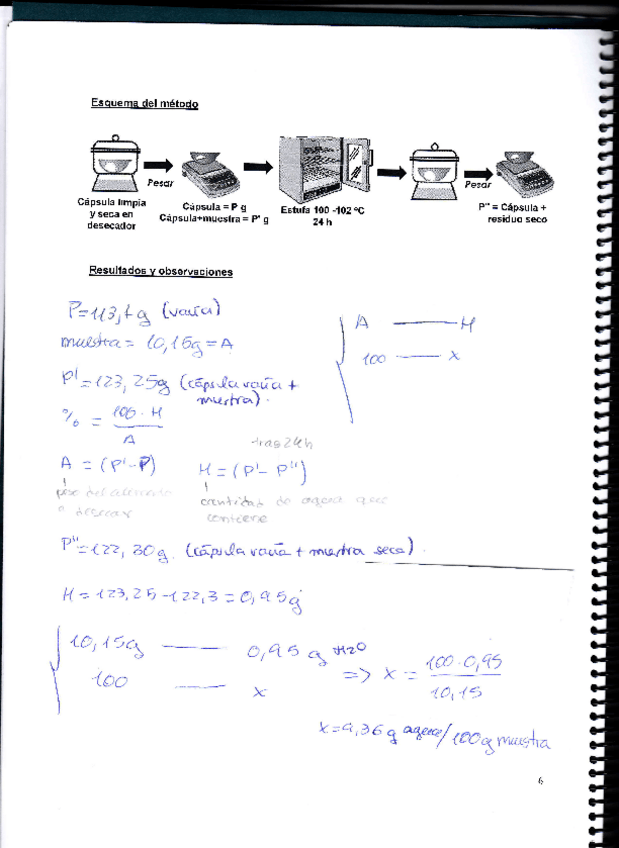 Esquema del método
Pesar
Pesar
Cápsula limpia
y seca en
desecador
Cápsula = P g
Cápsula+muestra = P' g
Estufa 100 -102 ºC
24 h
P'' = Cápsula +
residuo seco
Resultados y observaciones
P=113,1 g (vacía)
muestra = 10,15g = A
A — H
100 — x
P'=123,25g (cápsula vacía +
muestra).
% = 100 · H
A
tras 24h
A = (P'-P)
H = (P'- P'')
peso del alimento
a desecar
cantidad de agua que
contiene
P''=122,30g. (cápsula vacía + muestra seca).
H = 123,25-122,3 = 0,95g
10,15g — 0,95 g H2O
100 — x
=> x = 100·0,95
10,15
x=9,36 g agua/100g muestra
6